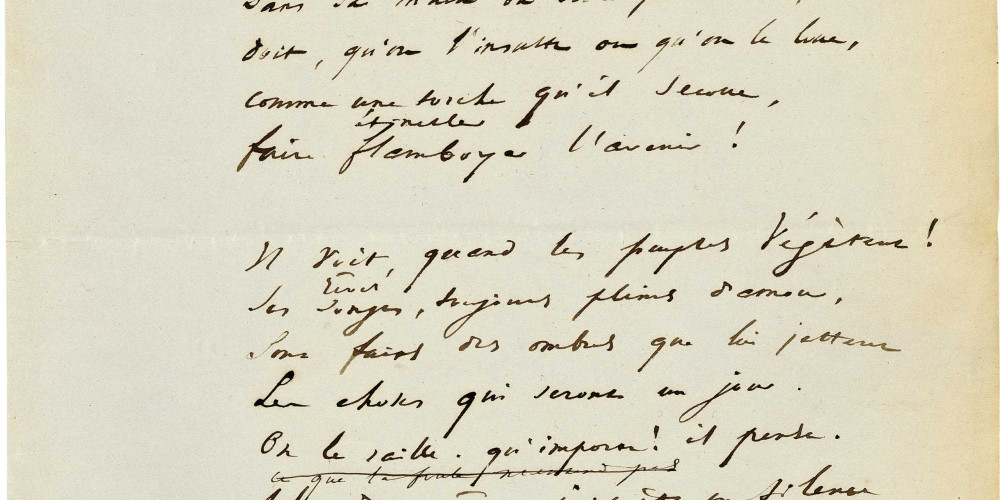 Dans sa main où
doit, qu'on l'insulte ou qu'on le loue,
comme une torche qu'il secoue,
étinceler
faire flamboyer l'avenir !
Il voit, quand les peuples végètent !
Rêves
Ses Songes, toujours pleins d'amour,
Sont faits des ombres que lui jettent
Les choses qui seront un jour.
On le raille. qu'importe ! il pense.
ce que la foule n'entend pas
en silence